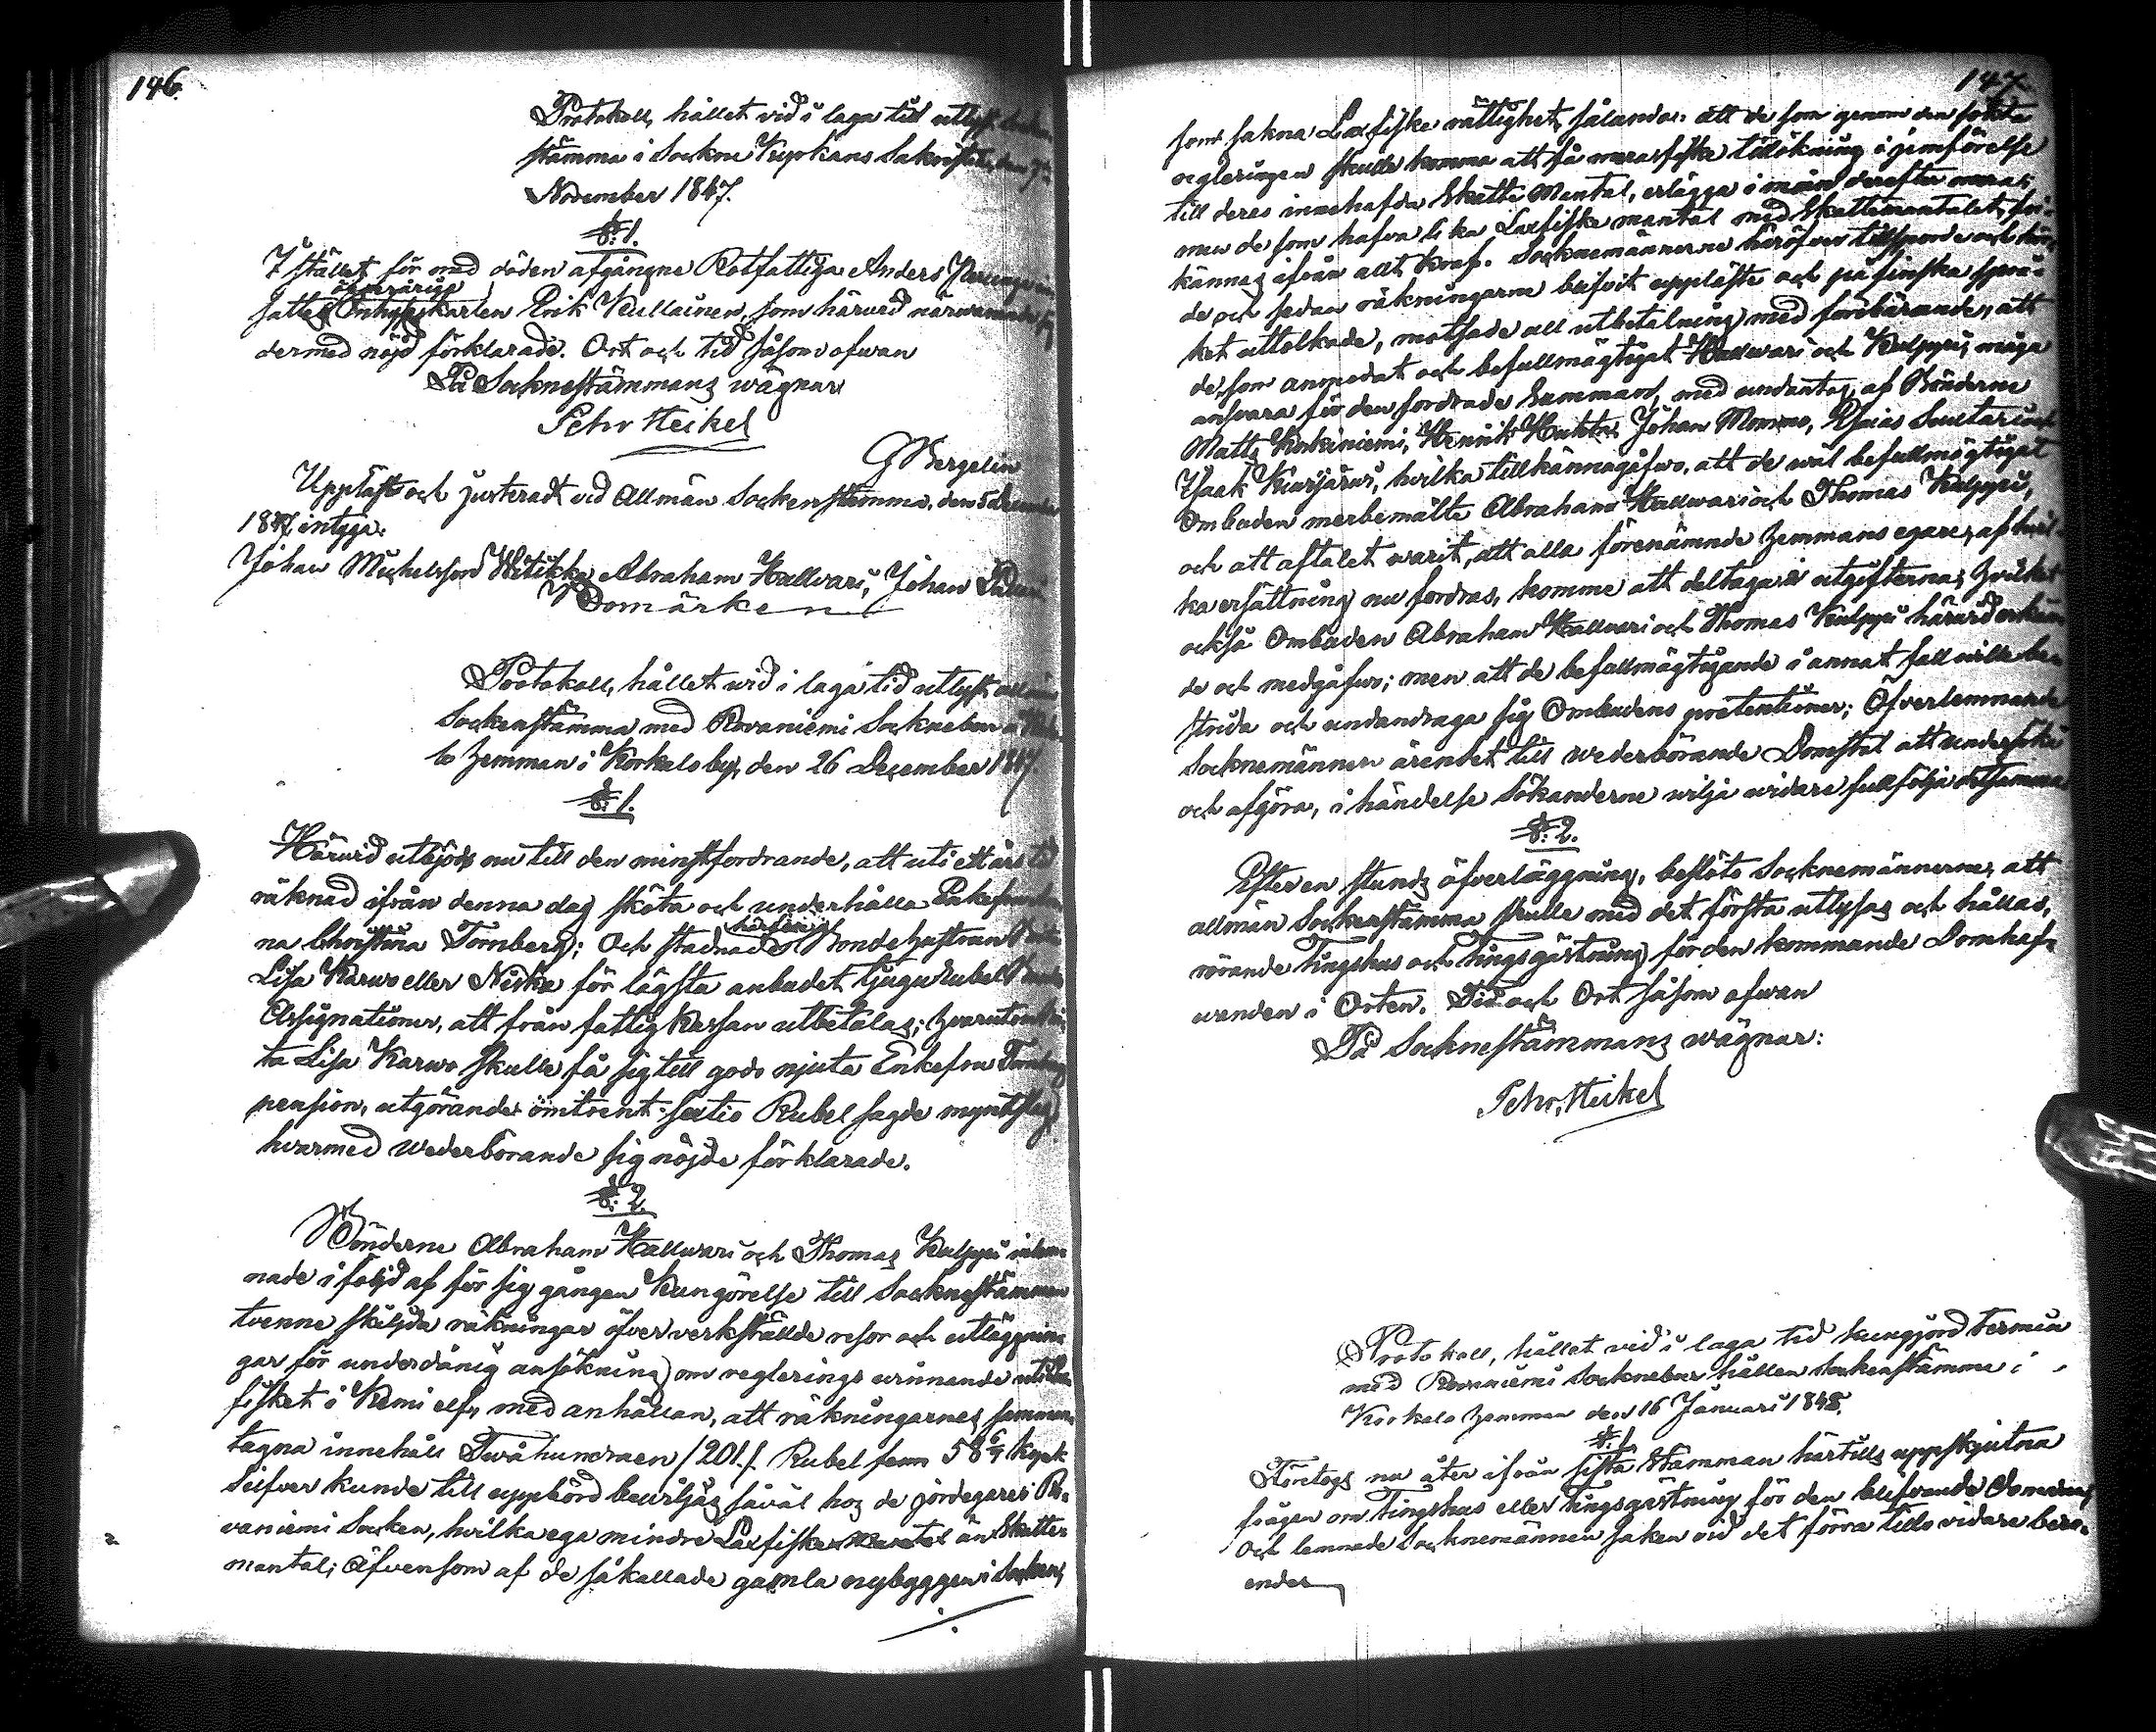 146.
Protokoll, hållet vid i laga tid utlyst Socken
stämma i Sockne Kyrkans Sakristia, den 7de
November 1847.
§: 1.
I stället för med döden afgångne Rotfattiga Anders
sattes Inhyseskarlen Erik Kallainen, som härvid närvarande sig
dermed nöjd förklarade. Ort och tid såsom ofvan
På Socknestämmans wägnar
Pehr Heikel
G Bergelin
Uppläst och justeradt vid Allmän Sockenstämma, den 5 December
1847, intyga:
Johan Michelsson Witikka, Abraham Hallvari, Johan
Bomärken
Protokoll, hållet wid i laga tid utlyst allmän
Sockenstämma med Rovaniemi Socknebor å
lo Hemman i Korkalo by, den 26 December 1847.
§: 1.
Härvid utbjöds nu till den minstfordrande, att uti ett års tid
räknad ifrån denna dag sköta och underhålla Enkefru
na Christina Tornberg; Och stadnade Bondehustrun
Lisa Karvo eller Niska för lägsta anbudet tjugu Rubel Banco
Assignationer, att från fattig Kassan utbetalas; hvarutom
ta Lisa Karvo skulle få sig till godo njuta Enkefru Tornbergs
pension, utgörande omtrent sextio Rubel sagde myntslag,
hvarmed Wederbörande sig nöjde förklarade.
§: 2.
Bönderne Abraham Hallvari och Thomas Kulppi inlem
nade i följd af för sig gången Kungörelse till Socknestämman
tvenne skiljda räkningar öfver verkställde resor och utläggnin
gar för underdånig ansökning om reglerings winnande uti Lax
fisket i Kemi elf, med anhållan, att räkningarnes samman
tagna innehåll Tvåhundraen /201./. Rubel fem 58 6/7 Kopek
Silfver kunde till uppbörd beviljas såväl hos de jordegare i Ro-
vaniemi Socken, hvilka ega mindre Laxfiske Mantal än Skatte-
mantal; Äfvensom af de såkallade gamla nybyggen i Socken,
147.
som sakna Laxfiske rättighet, sålunda: att de som genom den sökta
regleringen skulle komma att få mera fiske tillökning i jemförelse
till deres innehafda Skatte Mantal, erlägga i mån derefter mera;
men de som hafva lika Laxfiske mantal med Skattemantalet, fri-
kännas ifrån allt kraf. Socknemännerne häröfver tillsporde och hör
de och sedan räkningarne blifvit uppläste och på finska språ-
ket uttolkade, motsade all utbetalning med förebärande, att
de som anmodat och befullmägtigat Hallvari och Kulppi, måga
ansvara för den fordrade Summan, med undantag af Bönderne
Matts Korkiniemi, Henrik Hukka, Johan Mommo, Esaias Suutari och
Isaak Kuusijärvi, hvilka tillkännagåfvo, att de wäl befullmägtigat
Ombuden merbemälte Abraham Hallvari och Thomas Kulppi,
och att aftalet warit, att alla förenämnde Hemmans egare, af hvil-
ka ersättning nu fordras, komme att deltaga i utgifterna; Hvilket
också Ombuden Abraham Hallvari och Thomas Kulppi härvid erkän
de och medgåfvo; men att de befullmägtigande i annat fall wille be-
strida och undandraga sig Ombudens pretentioner; Öfverlemnande
Socknemännen ärendet till wederbörande Domstol att undersöka
och afgöra, i händelse Sökanderne wilja widare fullfölja detsamma.
§: 2.
Efter en stunds öfverläggning, beslöto Socknemännerne, att
allmän Sockenstämma skulle med det första utlysas och hållas,
rörande Tingshus och Tingsgästning för den kommande Domhaf-
wanden i Orten. Tid och Ort såsom ofvan
På Socknestämmans wägnar:
Pehr Heikel
Protokoll, hållet vid i laga tid kungjord termin
med Rovaniemi Socknebor hållen Sockenstämma i
Korkalo Hemman den 16 Januari 1848.
§: 1.
Företogs nu åter ifrån sista Stämman härtills uppskjutna
frågan om Tingshus eller Tingsgästning för den blifvande
Och lemnade Socknemännen saken vid det förra tills vidare bero-
ende